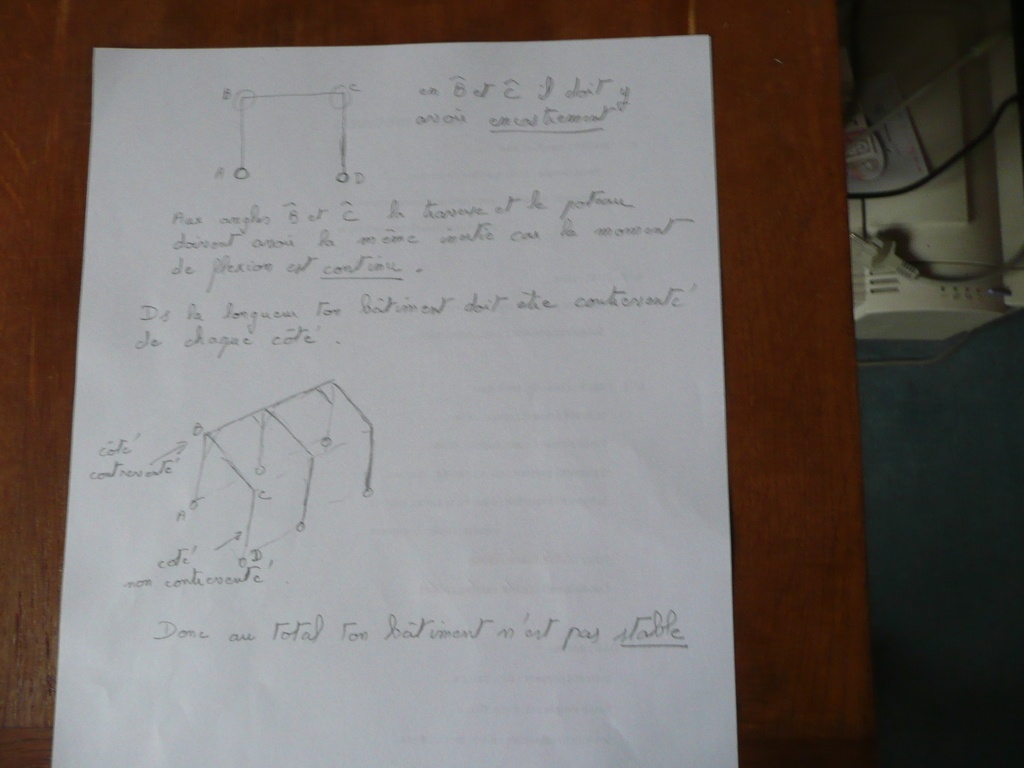 B
C
A
D
en B̂ et Ĉ il doit y
avoir encastrement
Aux angles B̂ et Ĉ la traverse et le poteau
doivent avoir la même inertie car le moment
de flexion est continu.
Ds la longueur ton bâtiment doit être contreventé
de chaque côté.
B
côté
contreventé
A
C
D
côté
non contreventé.
Donc au total ton bâtiment n'est pas stable